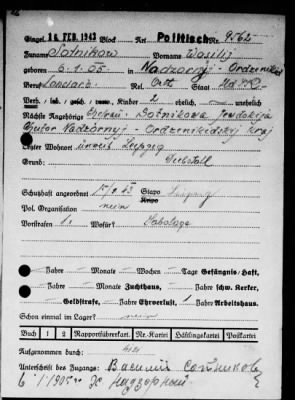 Eingel. 16 FEB. 1943 Block Politisch Nr. 9562
Zuname Sotnikow Vorname Wasilij
geboren 6.1.05 in Nadzornyj - Ordzonikidse
Beruf Rel. Orth Staat
Verh., led., gesch., verw., Kinder 2 ehelich — unehelich
Nächste Angehörige Ehefrau: Sotnikowa Jewdokija
Chutor Nadzornyj - Ordzonikidskij kraj
Letzter Wohnort Leipzig
Grund: Diebstahl
Schutzhaft angeordnet 43 Stapo Leipzig
Kripo
Pol. Organisation nein
Vorstrafen 1. Wofür? Sabotage
Jahre — Monate — Wochen — Tage Gefängnis/Haft,
Jahre — Monate Zuchthaus, Jahre schw. Kerker,
Geldstrafe, Jahre Ehrverlust, 1 Jahre Arbeitshaus.
Schon einmal im Lager? nein
Buch 1 2 Rapportführerkart. Nr.-Kartei Häftlingskartei Postkartei
Aufgenommen durch:
Unterschrift des Zugangs: Василий Сотников
6 I 1905 г Х надзорный